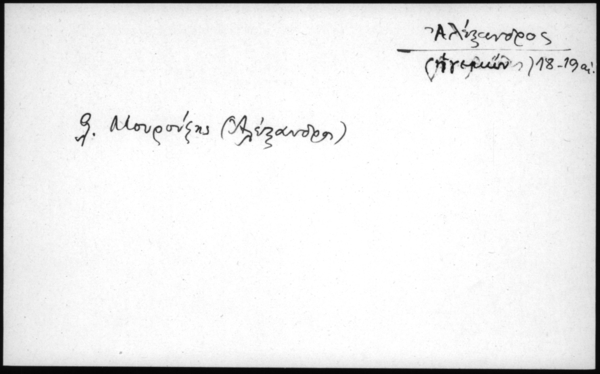 Ἀλέξανδρος
(ἡγεμών) 18-19 αἰ.
Μουρούζης (Ἀλέξανδρος)